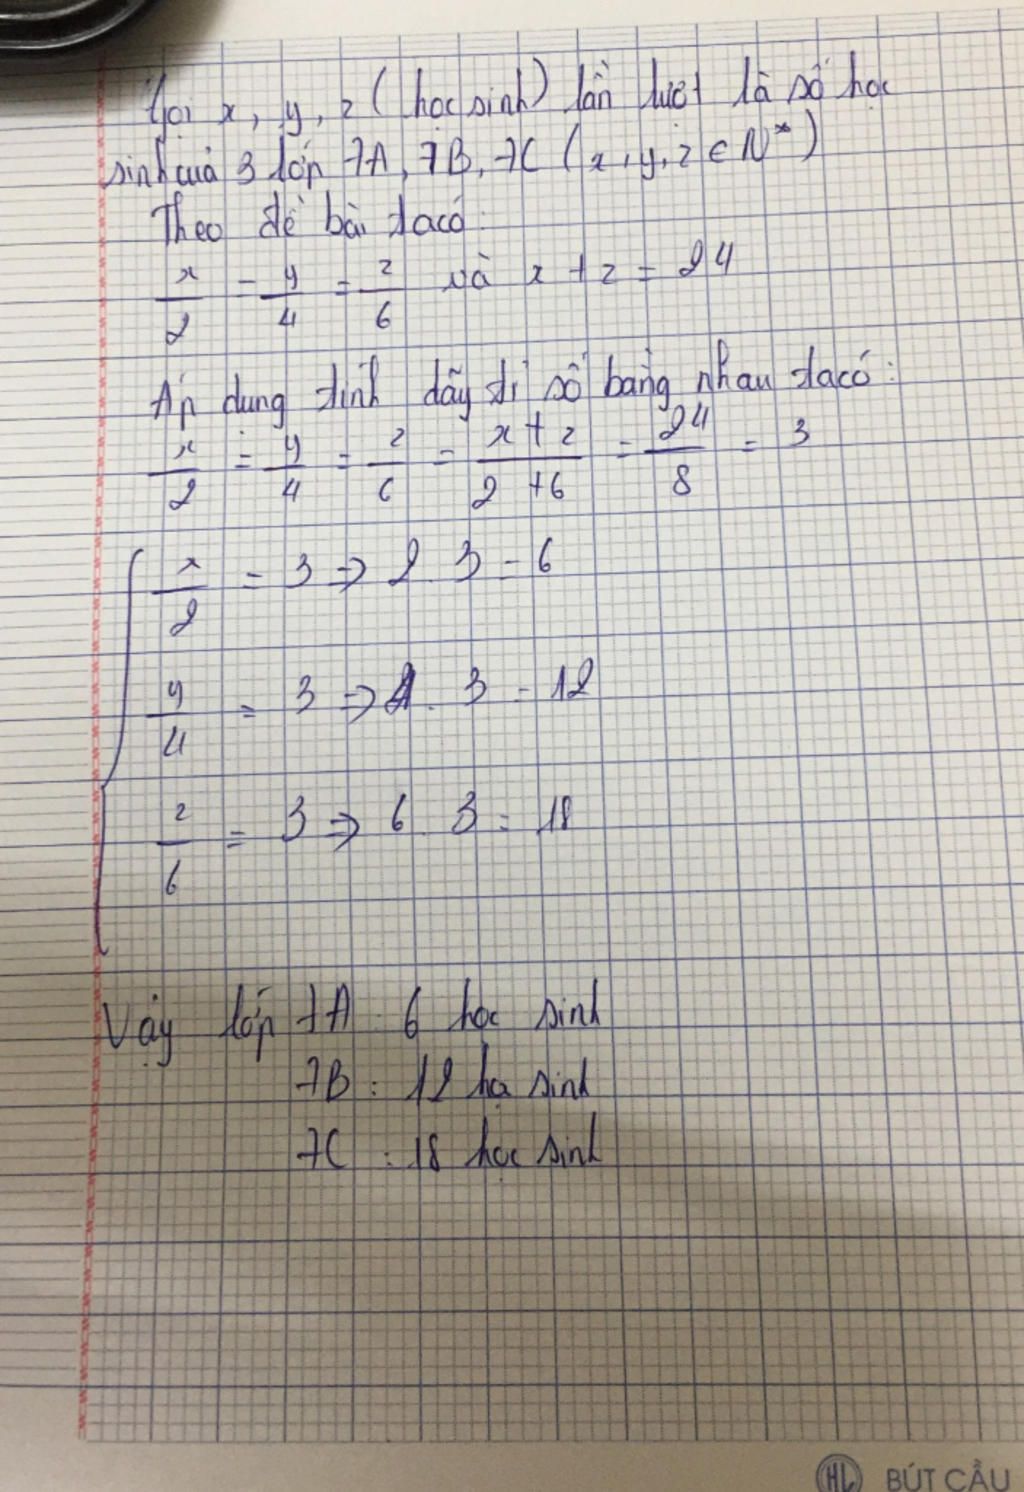 Gọi x, y, z (học sinh) lần lượt là số học
sinh của 3 lớp 7A, 7B, 7C (x, y, z ∈ N*)
Theo đề bài ta có:
x/2 = y/4 = z/6 và x + z = 24
Áp dụng tính dãy tỉ số bằng nhau ta có:
x/2 = y/4 = z/6 = x + z/2 + 6 = 24/8 = 3
x/2 = 3 => 2. 3 = 6
y/4 = 3 => 4. 3 = 12
z/6 = 3 => 6. 3 = 18
Vậy lớp 7A: 6 học sinh
7B: 12 họ sinh
7C: 18 học sinh
HL BÚT CẦU